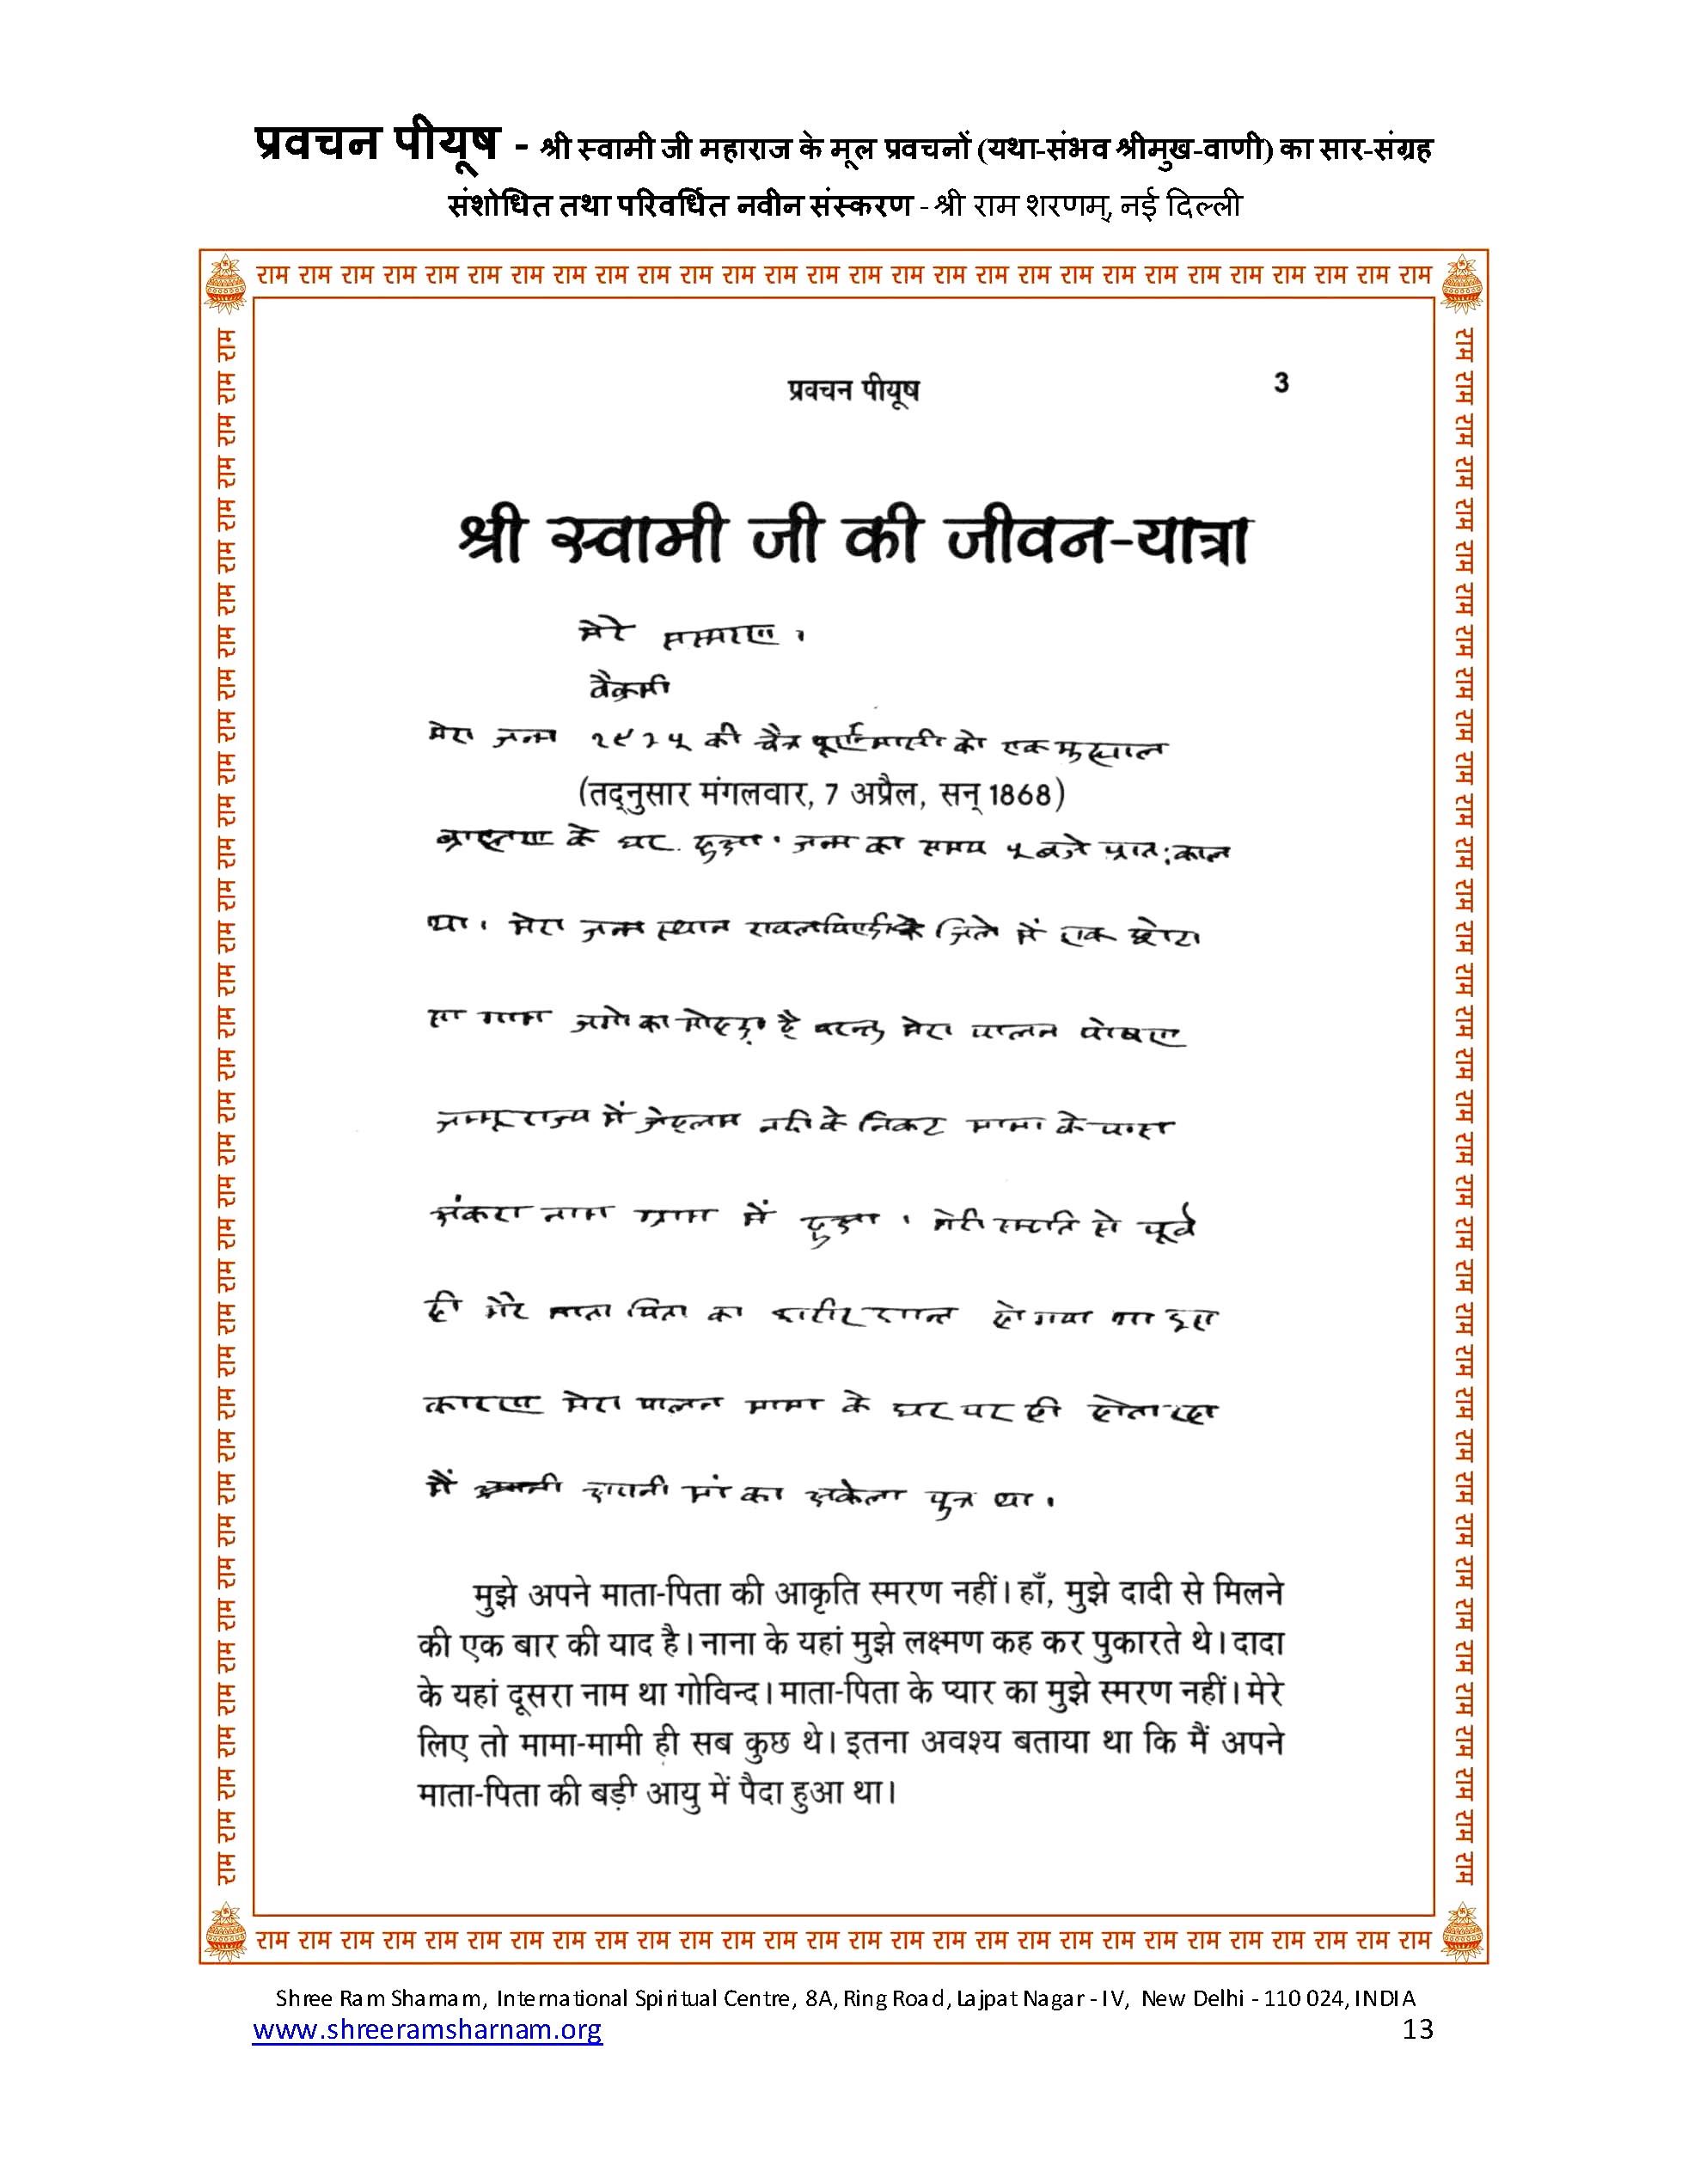 प्रवचन पीयूष - श्री स्वामी जी महाराज के मूल प्रवचनों (यथा-संभव श्रीमुख-वाणी) का सार-संग्रह
संशोधित तथा परिवर्धित नवीन संस्करण - श्री राम शरणम्, नई दिल्ली
राम राम राम राम राम राम राम राम राम राम राम राम राम राम राम राम राम राम राम राम राम राम राम राम राम राम राम राम
प्रवचन पीयूष 3
श्री स्वामी जी की जीवन-यात्रा
मेरे
वैक्रमी
मेरा जन्म १९२५ की चैत्र पूर्णमासी को एक
(तद्नुसार मंगलवार, 7 अप्रैल, सन् 1868)
ब्राह्मण के घर हुआ। जन्म का समय ५ बजे प्रात:काल
था। मेरा जन्म स्थान रावलपिण्डी के जिले में एक छोटा
सा ग्राम है परन्तु मेरा पालन पोषण
जम्मू राज्य में जेहलम नदी के निकट मामा के पास
अंकरा नाम ग्राम में हुआ। मेरी स्मृति से पूर्व
ही मेरे माता पिता का शरीर शान्त हो गया था इस
कारण मेरा पालन मामा के घर पर ही होता रहा
मैं अपनी मां का अकेला पुत्र था।
मुझे अपने माता-पिता की आकृति स्मरण नहीं। हाँ, मुझे दादी से मिलने
की एक बार की याद है। नाना के यहां मुझे लक्ष्मण कह कर पुकारते थे। दादा
के यहां दूसरा नाम था गोविन्द। माता-पिता के प्यार का मुझे स्मरण नहीं। मेरे
लिए तो मामा-मामी ही सब कुछ थे। इतना अवश्य बताया था कि मैं अपने
माता-पिता की बड़ी आयु में पैदा हुआ था।
राम राम राम राम राम राम राम राम राम राम राम राम राम राम राम राम राम राम राम राम राम राम राम राम राम राम राम राम
Shree Ram Sharnam, International Spiritual Centre, 8A, Ring Road, Lajpat Nagar - IV, New Delhi - 110 024, INDIA
www.shreeramsharnam.org 13